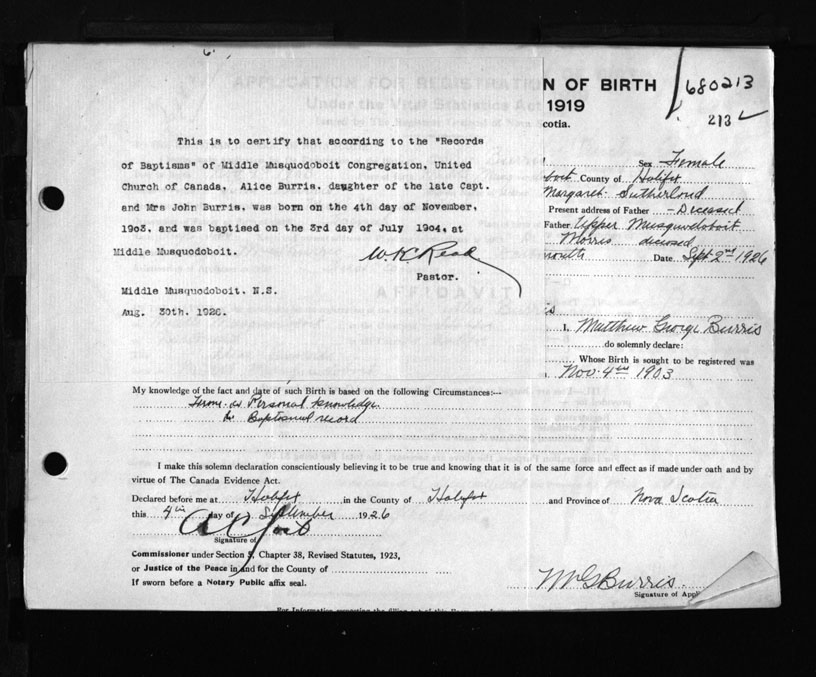 N OF BIRTH
680213
1919
213
cotia.
This is to certify that according to the "Records
of Baptisms" of Middle Musquodoboit Congregation, United
Church of Canada, Alice Burris, daughter of the late Capt.
and Mrs John Burris, was born on the 4th day of November,
1903, and was baptised on the 3rd day of July 1904, at
Middle Musquodoboit.
W.K. Read
Pastor.
Middle Musquodoboit. N.S.
Aug. 30th. 1926.
Sex Female
boit County of Halifax
Margaret Sutherland
Present address of Father - Deceased
Father Upper Musquodoboit
Morris deceased
mouth Date Sept 2nd 1926
I, Matthew George Burris
do solemnly declare:
Whose Birth is sought to be registered was
Nov. 4th 1903
My knowledge of the fact and date of such Birth is based on the following Circumstances:—
Personal knowledge
Baptismal record
I make this solemn declaration conscientiously believing it to be true and knowing that it is of the same force and effect as if made under oath and by
virtue of The Canada Evidence Act.
Declared before me at Halifax in the County of Halifax and Province of Nova Scotia
this 4th day of September 1926
Signature of
Commissioner under Section 5, Chapter 38, Revised Statutes, 1923,
or Justice of the Peace in and for the County of
If sworn before a Notary Public affix seal.
M G Burris
Signature of Appl